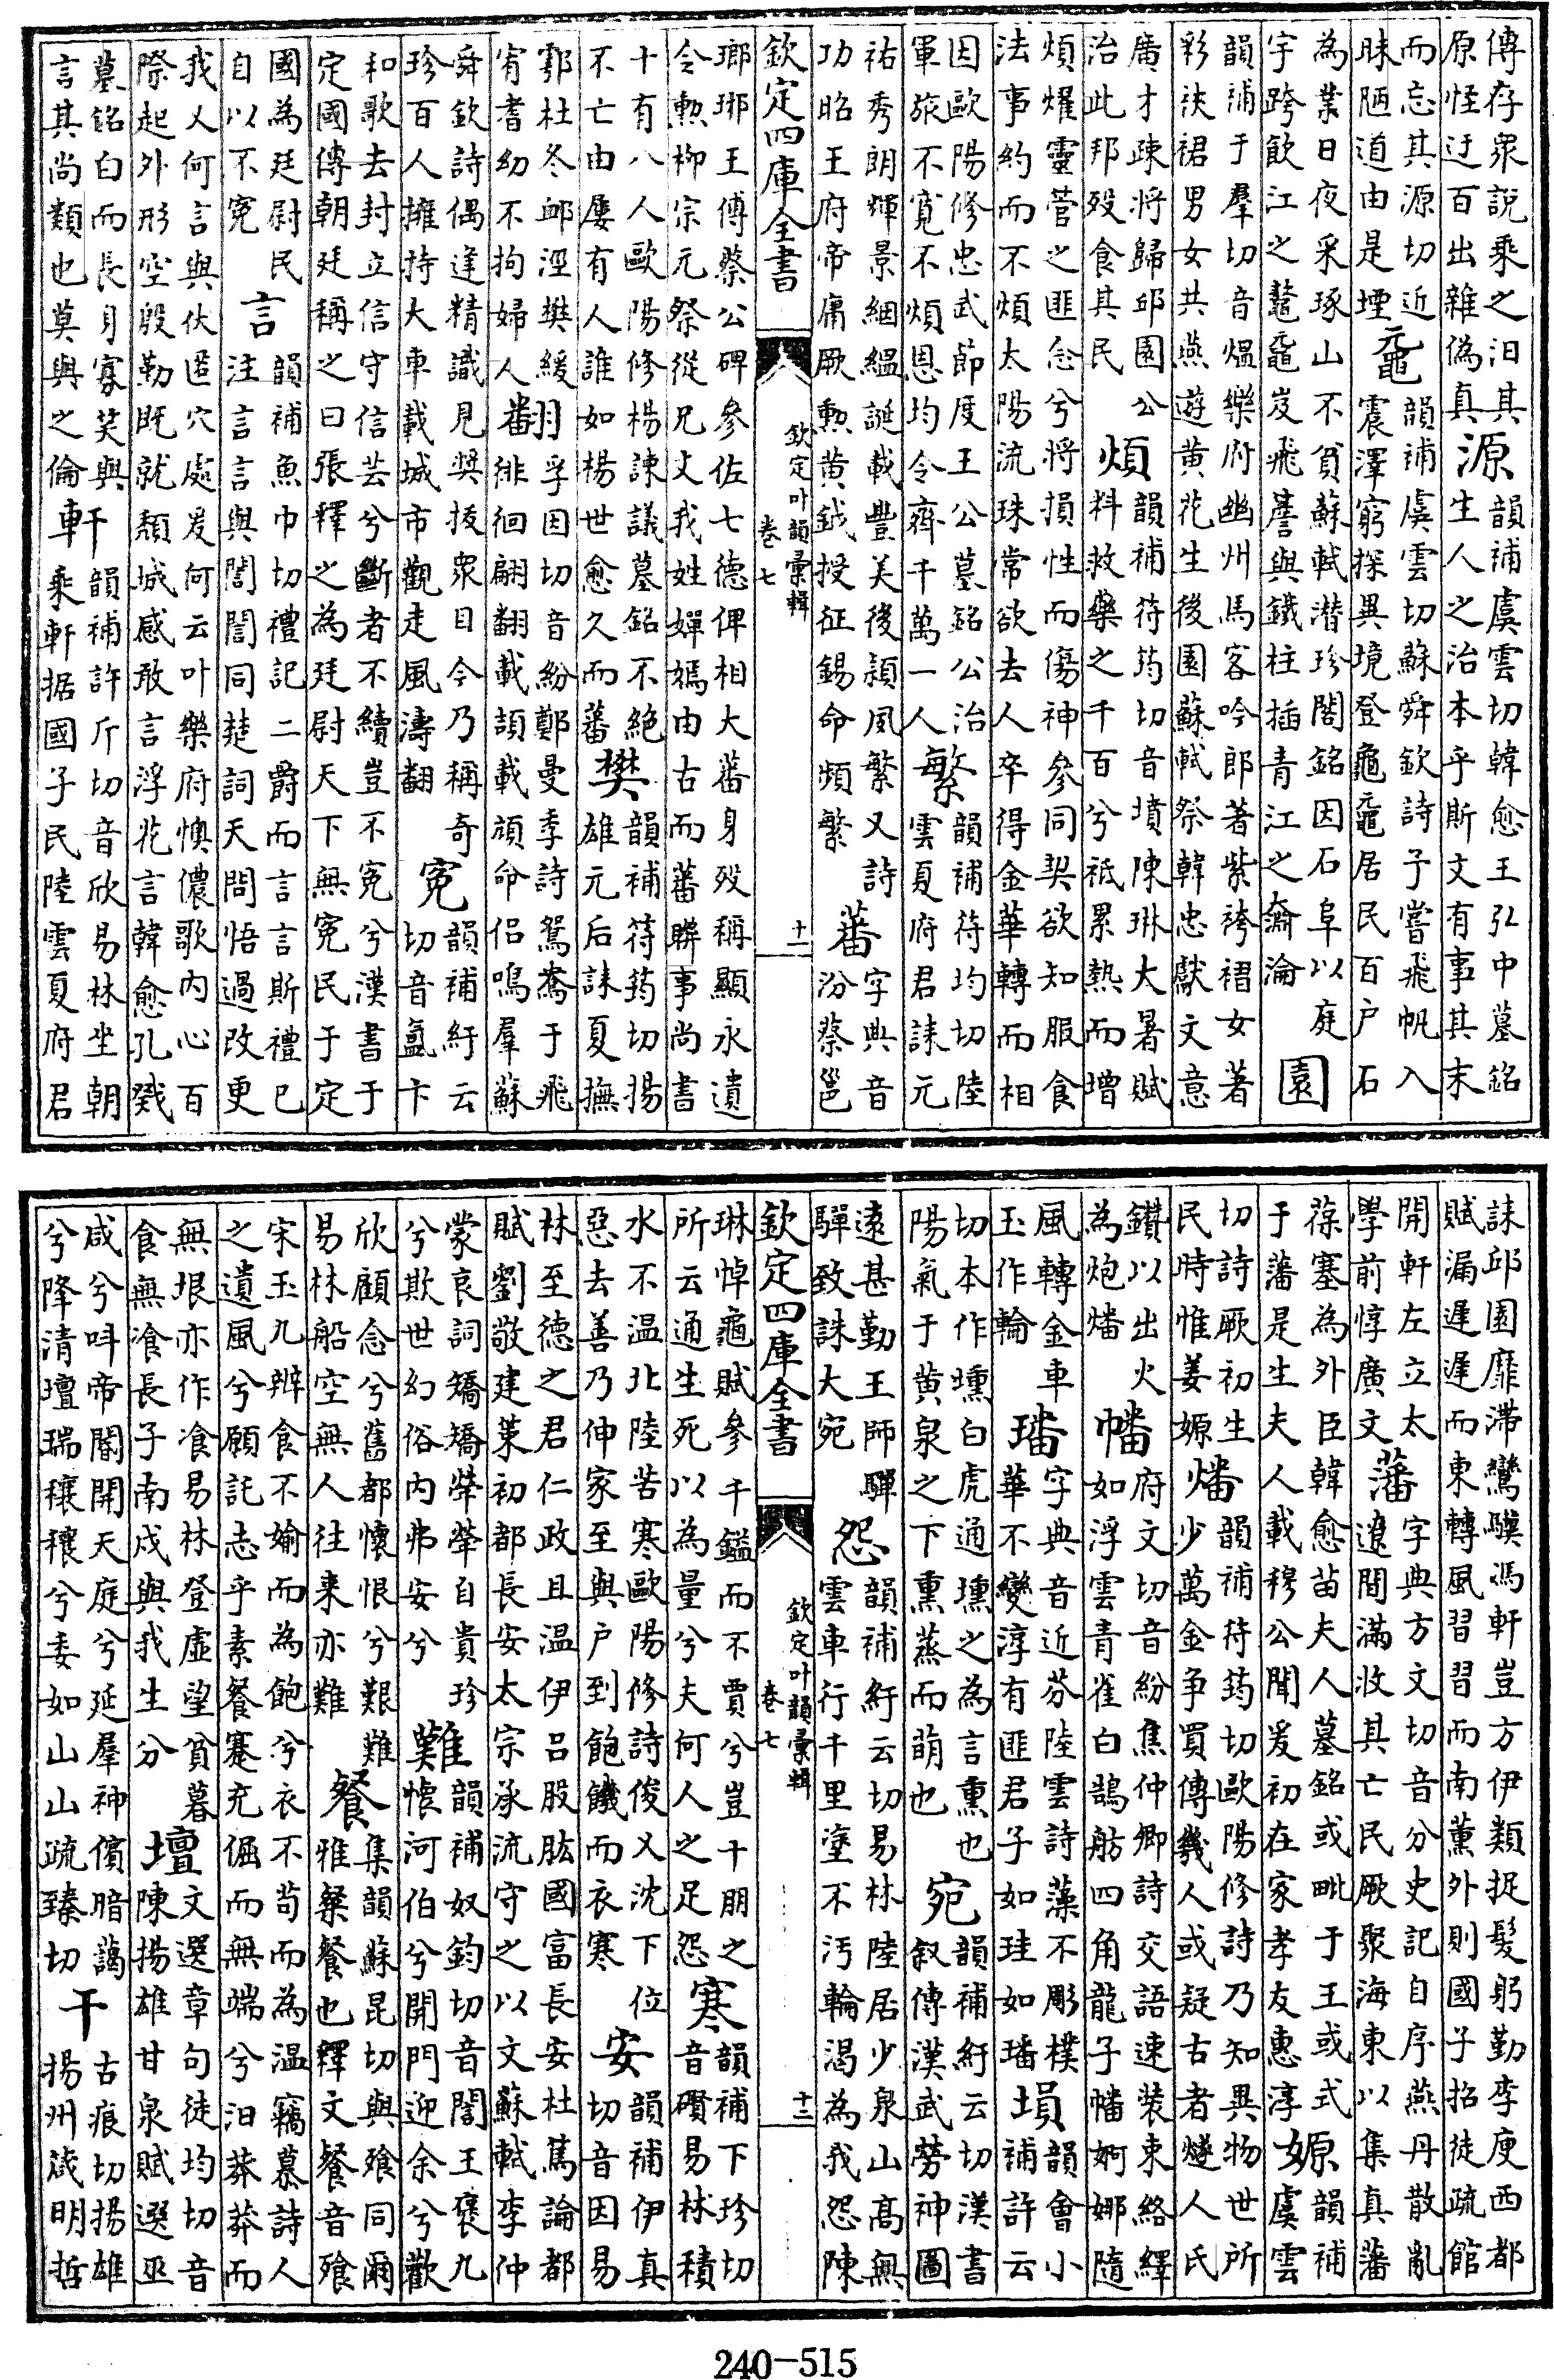 傳存衆說乘之汨其
原怪迂百出雜偽真
源
韻補虞雲切韓愈王弘中墓銘
生人之治本乎斯文有事其末
而忘其源切近
昧陋道由是堙
黿
韻補虞雲切蘇舜欽詩子嘗飛帆入
震澤窮探異境登龜黿居民百户石
為業日夜采琢山不貧蘇軾潜珍閣銘因石阜以庭
宇跨飲江之鼇黿岌飛簷與鐵柱插青江之奫淪
園
韻補于羣切音熅樂府幽州馬客吟郎著紫袴褶女著
彩裌裙男女共燕遊黄花生後園蘇軾祭韓忠獻文意
廣才疎將歸邱園公
治此邦歿食其民
煩
韻補符筠切音墳陳琳大暑賦
料救藥之千百兮祇累熱而增
煩燿靈菅之匪念兮將損性而傷神參同契欲知服食
法事約而不煩太陽流珠常欲去人卒得金華轉而相
因歐陽修忠武節度王公墓銘公治
軍旅不寛不煩恩均令齊千萬一人
繁
韻補符均切陸
雲夏府君誄元
祐秀朗輝景絪縕誕載豐美後潁夙繁又詩
功昭王府帝庸厥勲黄鉞授征錫命頻繁
蕃
字典音
汾蔡邕
欽定四庫全書
欽定叶韻彚輯
卷七
十一
瑯琊王傅蔡公碑參佐七德俾相大蕃身歿稱顯永遺
令勲柳宗元祭從兄文我姓嬋嫣由古而蕃聨事尚書
十有八人歐陽修楊諫議墓銘不絶
不亡由屢有人誰如楊世愈久而蕃
樊
韻補符筠切揚
雄元后誄夏撫
鄠杜冬郵涇樊緩
宥耆幼不拘婦人
翻
孚因切音紛鄭曼季詩鴛鴦于飛
徘徊翩翻載頡載頏命侣鳴羣蘇
舜欽詩偶逢精識見奨拔衆目今乃稱奇
珍百人擁持大車載城市觀走風濤翻
寃
韻補紆云
切音氲卞
和歌去封立信守信芸兮斷者不續豈不寃兮漢書于
定國傳朝廷稱之曰張釋之為廷尉天下無寃民于定
國為廷尉民
自以不寃
言
韻補魚巾切禮記二爵而言言斯禮已
注言言與誾誾同楚詞天問悟過改更
我又何言與伏匿穴處爰何云叶樂府懊儂歌内心百
際起外形空殷勤既就頽城感敢言浮花言韓愈孔戣
墓銘白而長身寡笑與
言其尚類也莫與之倫
軒
韻補許斤切音欣易林坐朝
乘軒据國子民陸雲夏府君
誄邱園靡滯鸞驥馮軒豈方伊類捉髮躬勤李庾西都
賦漏遲遲而東轉風習習而南薫外則國子招徒疏館
開軒左立太
學前惇廣文
藩
字典方文切音分史記自序燕丹散亂
遼間滿收其亡民厥聚海東以集真藩
葆塞為外臣韓愈苗夫人墓銘或毗于王或式
于藩是生夫人載穆公聞爰初在家孝友惠淳
嫄
韻補
虞雲
切詩厥初生
民時惟姜嫄
燔
韻補符筠切歐陽修詩乃知異物世所
少萬金争買傳㡬人或疑古者燧人氏
鑚以出火
為炮燔
幡
府文切音紛焦仲卿詩交語速装束絡繹
如浮雲青雀白鵠舫四角龍子幡婀娜隨
風轉金車
玉作輪
璠
字典音近芬陸雲詩藻不彫樸
華不變淳有匪君子如珪如璠
塤
韻會小
補許云
切本作壎白虎通壎之為言熏也
陽氣于黄泉之下熏蒸而萌也
宛
韻補紆云切漢書
叙傳漢武勞神圖
遠甚勤王師驒
驒致誅大宛
怨
韻補紆云切易林陸居少泉山高無
雲車行千里塗不汚輪渴為我怨陳
欽定四庫全書
欽定叶韻彚輯
卷七
十二
琳悼龜賦參千鎰而不賈兮豈十朋之
所云通生死以為量兮夫何人之足怨
寒
韻補下珍切
音礥易林積
水不温北陸苦寒歐陽修詩俊乂沈下位
惡去善乃伸家至與户到飽饑而衣寒
安
韻補伊真
切音因易
林至德之君仁政且温伊吕股肱國富長安杜篤論都
賦劉敬建策初都長安太宗承流守之以文蘇軾李仲
蒙哀詞矯矯犖犖自貴珍
兮欺世幻俗内弗安兮
難
韻補奴鈞切音誾王褒九
懷河伯兮開門迎余兮歡
欣顧念兮舊都懷恨兮艱難
易林船空無人往来亦難
餐
集韻蘇昆切與飧同爾
雅粲餐也釋文餐音飧
宋玉九辨食不媮而為飽兮衣不苟而為温竊慕詩人
之遺風兮願託志乎素餐蹇充倔而無端兮汨莽莽而
無垠亦作飡易林登虛望貧暮
食無飡長子南戍與我生分
壇
文選章句徒均切音
陳揚雄甘泉賦選巫
咸兮呌帝閽開天庭兮延羣神儐暗藹
兮降清壇瑞穰穰兮委如山山疏臻切
干
古痕切揚雄
揚州箴明哲
240-515